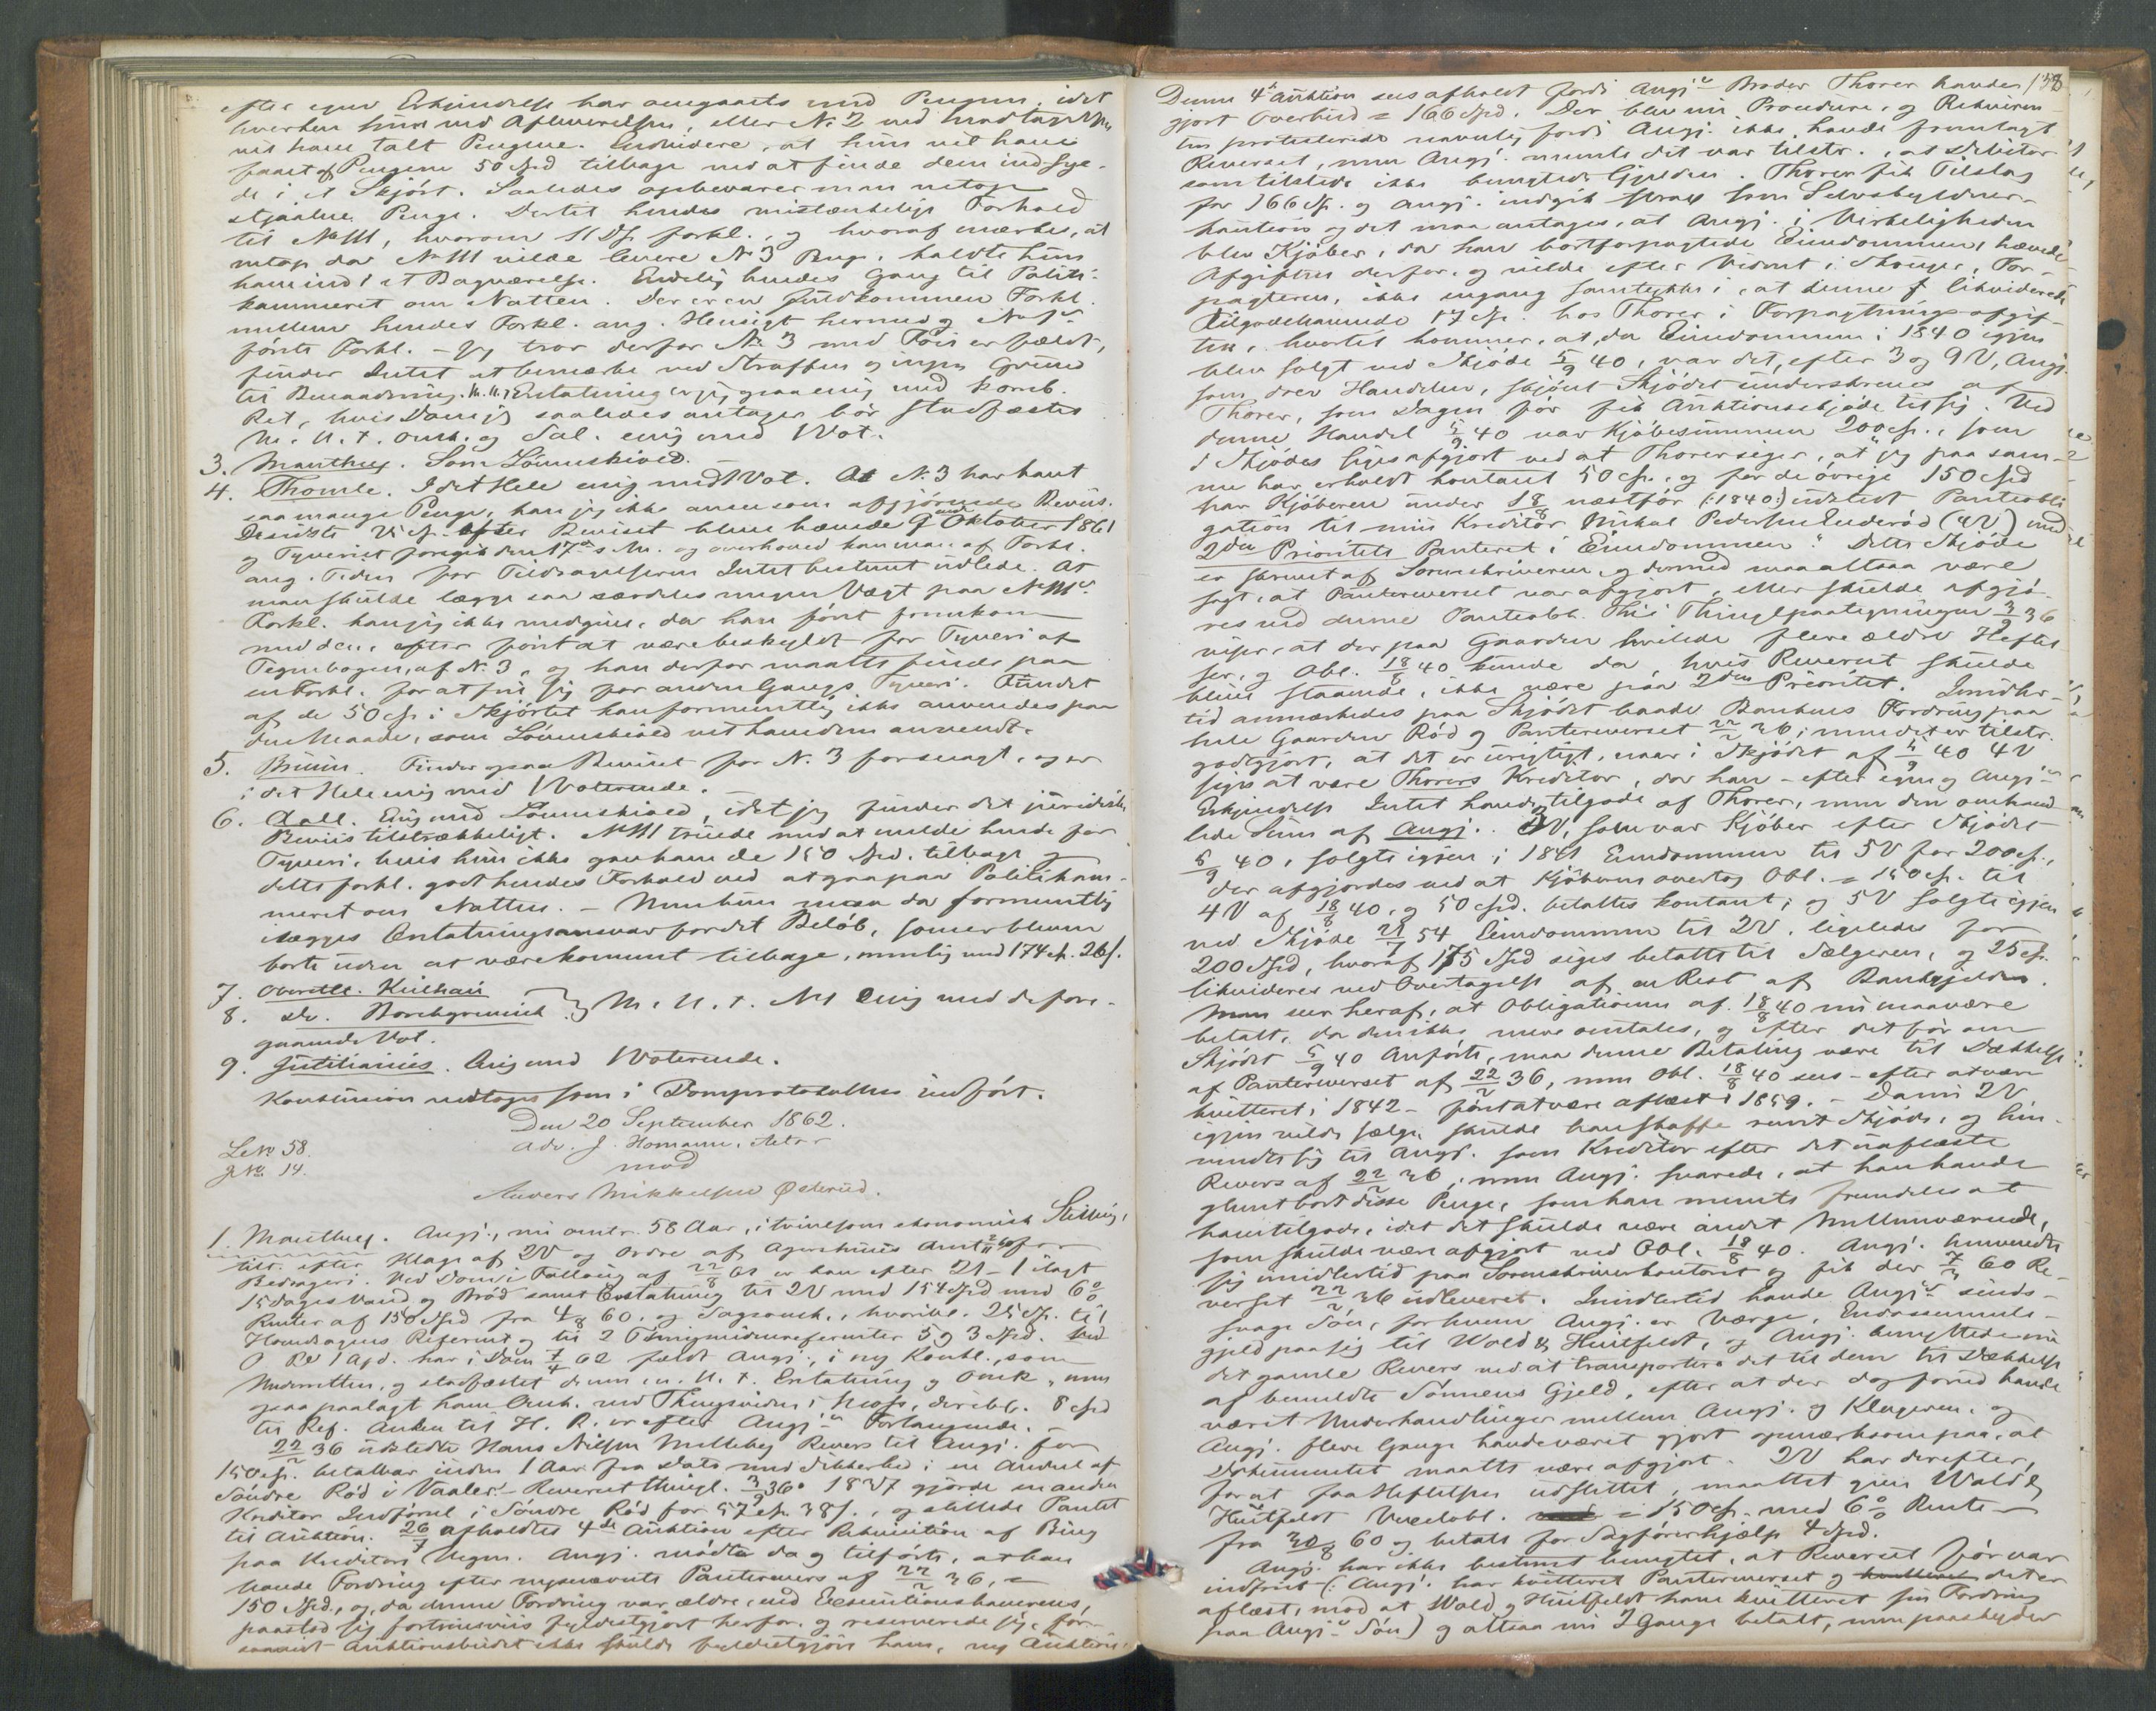 efter egen Erkjendelse har omgaaets med Pengene, idet
hverken hun ved Afleverelsen, eller N. 2 ved Modtagelsen
vil have talt Pengene. Endvidere, at hun vil have
faaet af Pengene 50 Spd tilbage ved at finde dem indsye-
de i et Skjört. Saaledes opbevarer man netop
stjaalne Penge. Dertil hendes mistænkelige Forhold
til NM, hvorom 11 forkl., og hvoraf mærkes, at
netop da NM vilde levere N. 3 Penge, kaldte hun
ham ind i et Bagværelse. Endelig hendes Gang til Politi-
kammeret om Natten. Der er en fuldkommen Forkl.
mellem hendes Forkl. ang. Hensigt hermed og
förste Forkl. – Jeg tror derfor N. 3 med Föie er fældt,
finder Intet at bemærke ved Straffen og ingen Grund
til Benaadning. Erstatning er jeg enig med komb.
Ret, hvis Dom jeg saaledes antager bör stadfæstes
M. U. t. Omk. og Sal. enig med Vot.
3. Manthey. Som Lövenskiold.
4. Thomle. I det Hele enig med Vot. At N. 3 har havt
saa mange Penge, kan jeg ikke anse som afgjörende Beviis.
De sidste efter Beviset blive hævede 9 Oktober 1861
og Tyveriet foregik den 17de s. M. og overhoved kan man af Forkl.
ang. Tiden for Tildragelserne Intet bestemt udlede. At
man skulde lægge saa særdeles megen Vægt paa NMs
Forkl. kan jeg ikke medgive, da han först fremkom
med den, efter först at være beskyldt for Tyveri af
Tegnebogen, af N. 3, og han derfor maatte finde paa
en Forkl. for at fri sig for anden Gangs Tyveri. Fundet
af de 50 Sp. i Skjörtet kan formentlig ikke anvendes paa
den Maade, som Lövenskiold vil have dem anvendt.
5. Bruun. Finder ogsaa Beviset for N. 3 forsvagt, og er
i det Hele enig med Voterende.
6. Aall. Enig med Lövenskiold, idet jeg finder det juridiske
Beviis tilstrækkeligt. NM truede med at melde hende for
Tyveri, hvis hun ikke gav ham de 150 Spd. tilbage og
dette forkl. godt hendes Forhold ved at gaa paa Politikam-
meret om Natten. – Men hun maa da formentlig
ilægges Erstatningsansvar for det Belöb, som er bleven
borte uden at være kommet tilbage, nemlig med 174 Sp. 26 s.
7. Oberstlt. Kielhau
8. do. Borchgrevink } M. U. t. NM Enig med de fore-
gaaende Vot.
9. Justitiarius. Enig med Voterende.
Konklusion vedtoges som i Domsprotokollen indfört.
Den 20 September 1862.
LeNo 58.
JNo 14.
Adv. J. Homann, Aktor
mod
Anders Mikkelsen Österud.
1. Manthey. Angj., nu omtr. 58 Aar, i tvivlsom ökonomisk Stilling,
tilt. efter Klage af 2V og Ordre af Agershuus Amt 2/11 60 for
Bedrageri. Ved Domi Follaug af 22/8 61 er han efter 21–1 ilagt
15 Dages Vand og Bröd samt Erstatning til 2V med 154 Spd med 6%
Renter af 150 Spd fra 4/8 60, og Sagsomk., hvoribl. 25 Sp. til
og til 2 5 og 3 Spd. Ved
O Rs 1 Apd. har i Dom 7/4 62 fældt Angj., i ny Konkl., som
Underretten, og stadfæstet denne m. U. t. Erstatning og Omk., men
ogsaa paalagt ham Omk. ved Thingsvidne i Moss, deribl. 8 Spd
til Ref. Anken til H. R. er efter Angj.s Forlangende. –
22/2 36 udstedte Hans Nilsen Melleby Revers til Angj. for
150 Sp. betalbar inden 1 Aar fra Dato med Sikkerhed i en Andeel af
Söndre Röd i Vaaler. – Reverset thingl. 3/9 36. 1837 gjorde en anden
Kreditor Indförsel i Söndre Röd for 57 Sp. 38 s., og stillede Pantet
til Auktion. 26/7 afholdtes 4de Auktion efter Rekvisition af Bing
paa Kreditors Vegne. Angj. mödte da og tilförte, at han
havde Fordring efter nysnævnte Pantrevers af 22/2 36, =
150 Spd., og, da denne Fordring var ældre, end Executionshaverens,
paastod sig fortrinsviis fyldestgjort herfor, og reserverede sig, for-
saavidt Auktionsbudet ikke skulde fyldestgjöre ham, ny Auktion.
138
Denne 4de Auktion sees afholdt fordi Angj.s Broder Thorer havde
gjort Overbud = 166 Spd. Der blev nu Procedure, og Rekviren-
ten protesterede navnlig fordi Angj. ikke havde fremlagt
Reverset, men Angj. mente det var tilstr., at Debitor
som tilstede ikke benegtede Gjælden. Thorer fik Tilslag
for 166 Sp. og Angj. indgik strax som Selvskyldner-
kaution og det maa antages, at Angj. i Virkeligheden
blev Kjöber, da han bortforpagtede Eiendommen, hævede
Afgiften derfor, og vilde efter Vidnet i Skouger, For-
pagteren, ikke engang samtykke i, at denne likviderede
Tilgodehavende 17 Sp. hos Thorer i Forpagtningsafgif-
ten, hvortil kommer, at, da Eiendommen i 1840 igjen
blev solgt ved Skjöde 5/9 40, var det, efter 3 og 9 V, Angj.
som drev Handelen, skjönt Skjödet underskreves af
Thorer, som Dagen för fik Auktionsskjöde til sig. Ved
denne Handel 5/9 40 var Kjöbesummen 200 Sp., som
i Skjödes siges afgjort ved at Thorer siger, at "jeg paa sam-
me har erholdt kontant 50 Sp. og for de övrige 150 Spd
har Kjöberen under 18/8 næstför (:1840:) udstedt Panteobli-
gation til min Kreditor Mikal Pedersen Enderöd (4V) med
2den Prioritets Panteret i Eiendommen." Dette Skjöde
er skrevet af Sorenskriveren, og dermed maa altsaa være
sagt, at Pantereverset var afgjort, eller skulde afgjö-
res ved denne Panteobl. Thi i Thinglpaategningen 3/9 36
vises, at der paa Gaarden hvilede flere ældre Heftel-
ser, og Obl. 18/8 40 kunde da, hvis Reverset skulde
blive staaende, ikke være paa 2den Prioritet. Imidler-
tid anmærkedes paa Skjödet baade Bankens Fordring paa
hele Gaarden Röd og Pantereverset 22/2 36; men det er tilstr.
godtgjort, at det er urigtigt, naar i Skjödet af 5/9 40 4V
siges at være Thorers Kreditor, da han – efter egen og Angj.s
Erkjendelse Intet havde tilgode af Thorer, men den omhand-
lede Sum af Angj. 3V, som var Kjöber efter Skjödet
5/9 40, solgte igjen i 1841 Eiendommen til 5V for 200 Sp.,
der afgjordes ved at Kjöberen overtog Obl. = 150 Sp. til
4V af 18/8 40, og 50 Spd. betaltes kontant; og 5V solgte igjen
ved Skjöde 21/7 54 Eiendommen til 2V, ligeledes for
200 Spd, hvoraf 175 Spd siges betalte til Sælgeren, og 25 Sp.
likvideres ved Overtagelse af en Rest af Bankgjælden.
Man seer heraf, at Obligationen af 18/8 40 nu maa være
betalt, da den ikke mere omtales, og efter det för om
Skjödet 5/9 40 Anförte, maa denne Betaling være til Dækkelse
af Pantereverset af 22/2 36, men Obl. 18/8 40 sees – efter at være
kvitteret i 1842 – först at være aflæst i 1859. – Da nu 2V
igjen vilde sælge, skulde han skaffe reent Skjöde, og hen-
vendte sig til Angj. som Kreditor efter det uaflæste
Revers af 22/2 36, men Angj. svarede, at han havde
glemt bort disse Penge, som han mente fremdeles at
have tilgode, idet det skulde være andet Mellemværende,
som skulde være afgjort ved Obl. 18/8 40. Angj. henvendte
sig imidlertid paa Sorenskriverkontoret og fik der 7/3 60 Re-
verset 22/2 36 udleveret. Imidlertid havde Angj.s sinds-
svage Sön, for hvem Angj. er Værge, Endossements-
gjeld paa sig til Wold & Huitfeldt, og Angj. benyttede nu
det gamle Revers ved at transportere det til dem til Dækkelse
af bemeldte Sönnens Gjeld, efter at der dog forud havde
været Underhandlinger mellem Angj. og Klageren, og
Angj. flere Gange havde været gjort opmærksom paa, at
Dokumentet maatte være afgjort. 2V har derefter,
for at faa Heftelsen udslettet, maattet give Wold &
Huitfeldt Vexelobl. = 150 Sp. med 6% Rente
fra 60 og betale for Sagförerhjælp 4 Spd.
Angj. har ikke bestemt benegtet, at Reverset för var
indfriet (: Angj. har kvitteret Pantereverset og det er
aflæst, mod at Wold og Huitfeldt have kvitteret sin Fordring
paa Angj.s Sön) og altsaa nu 2 Gange betalt, men paaskyder